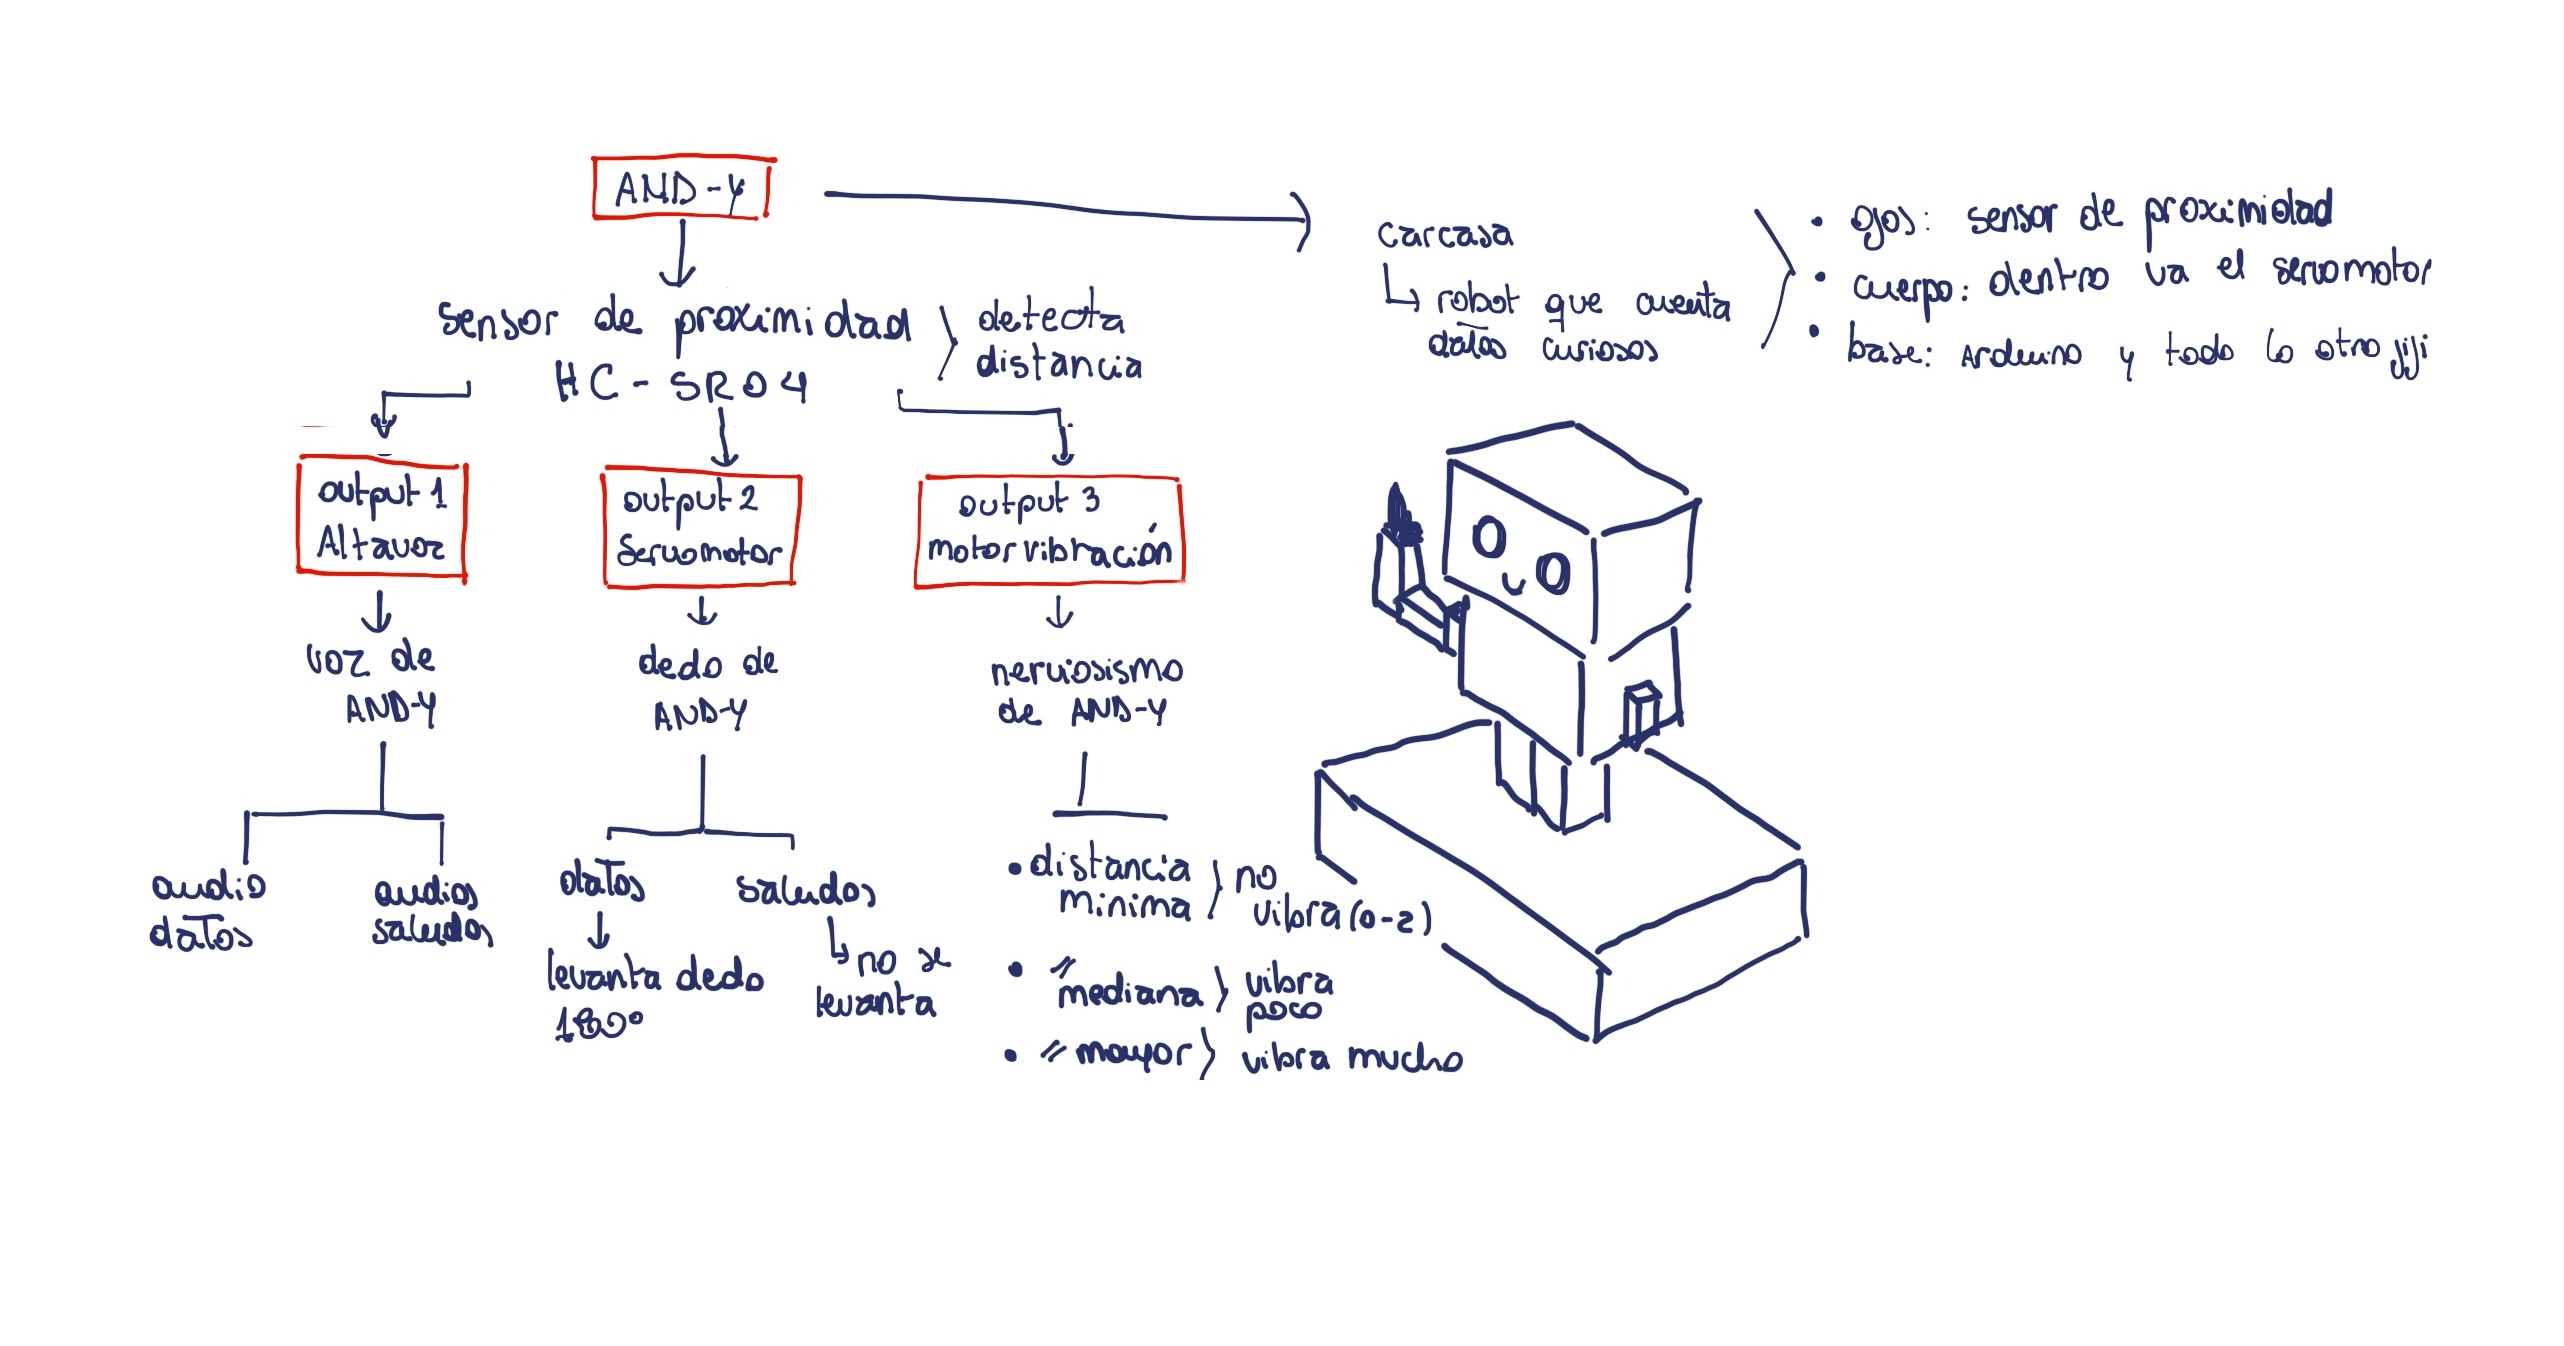 AND-Y
sensor de proximidad
HC-SR04
detecta
distancia
output 1
Altavoz
voz de
AND-Y
audio
datos
audios
saludos
output 2
Servomotor
dedo de
AND-Y
datos
levanta dedo
180°
saludos
no se
levanta
output 3
motor vibración
nerviosismo
de AND-Y
• distancia
minima
no
vibra (0-2)
• "
mediana
vibra
poco
• " mayor
vibra mucho
carcasa
robot que cuenta
datos curiosos
• ojos: sensor de proximidad
• cuerpo: dentro va el servomotor
• base: Arduino y todo lo otro jiji